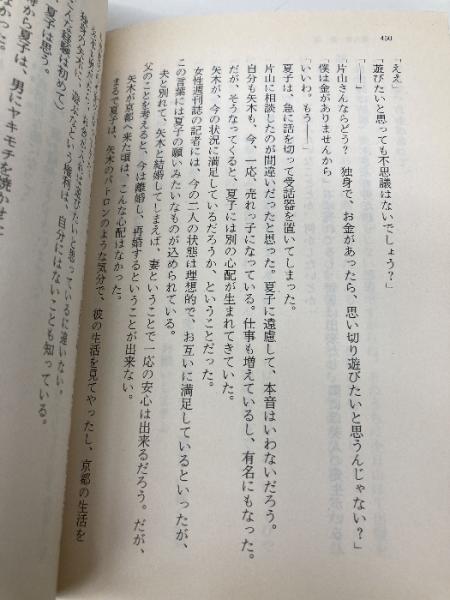 450
「ええ」
「遊びたいと思っても不思議はないでしょう？」
「片山さんならどう？　独身で、お金があったら、思い切り遊びたいと思うんじゃない？」
「僕は金がありませんから」
「いいわ。もう――」
夏子は、急に話を切って受話器を置いてしまった。
片山に相談したのが間違いだったと思った。夏子に遠慮して、本音はいわないだろう。
自分も矢木も、今、一応、売れっ子になっている。仕事も増えているし、有名にもなった。
だが、そうなってくると、夏子には別の心配が生まれてきていた。
矢木が、今の状況に満足しているだろうか、ということだった。
女性週刊誌の記者には、今の二人の状態は理想的で、お互いに満足しているといったが、
この言葉には夏子の願いみたいなものが込められている。
夫と別れて、矢木と結婚してしまえば、妻ということで一応の安心は出来るだろう。だが、
父のことを考えると、今は離婚し、再婚するということが出来ない。
矢木が京都へ来た頃は、こんな心配はなかった。
まるで夏子は、矢木のパトロンのような気分で、彼の生活を見てやったし、京都の生活を
「――」
に遊びたいと思っているに違いない。
独身の矢木に、遊ぶなという権利は、自分にはないことも知っている。
経験は初めて
夏子は思う。
から夏子は、男にヤキモチを焼かせ